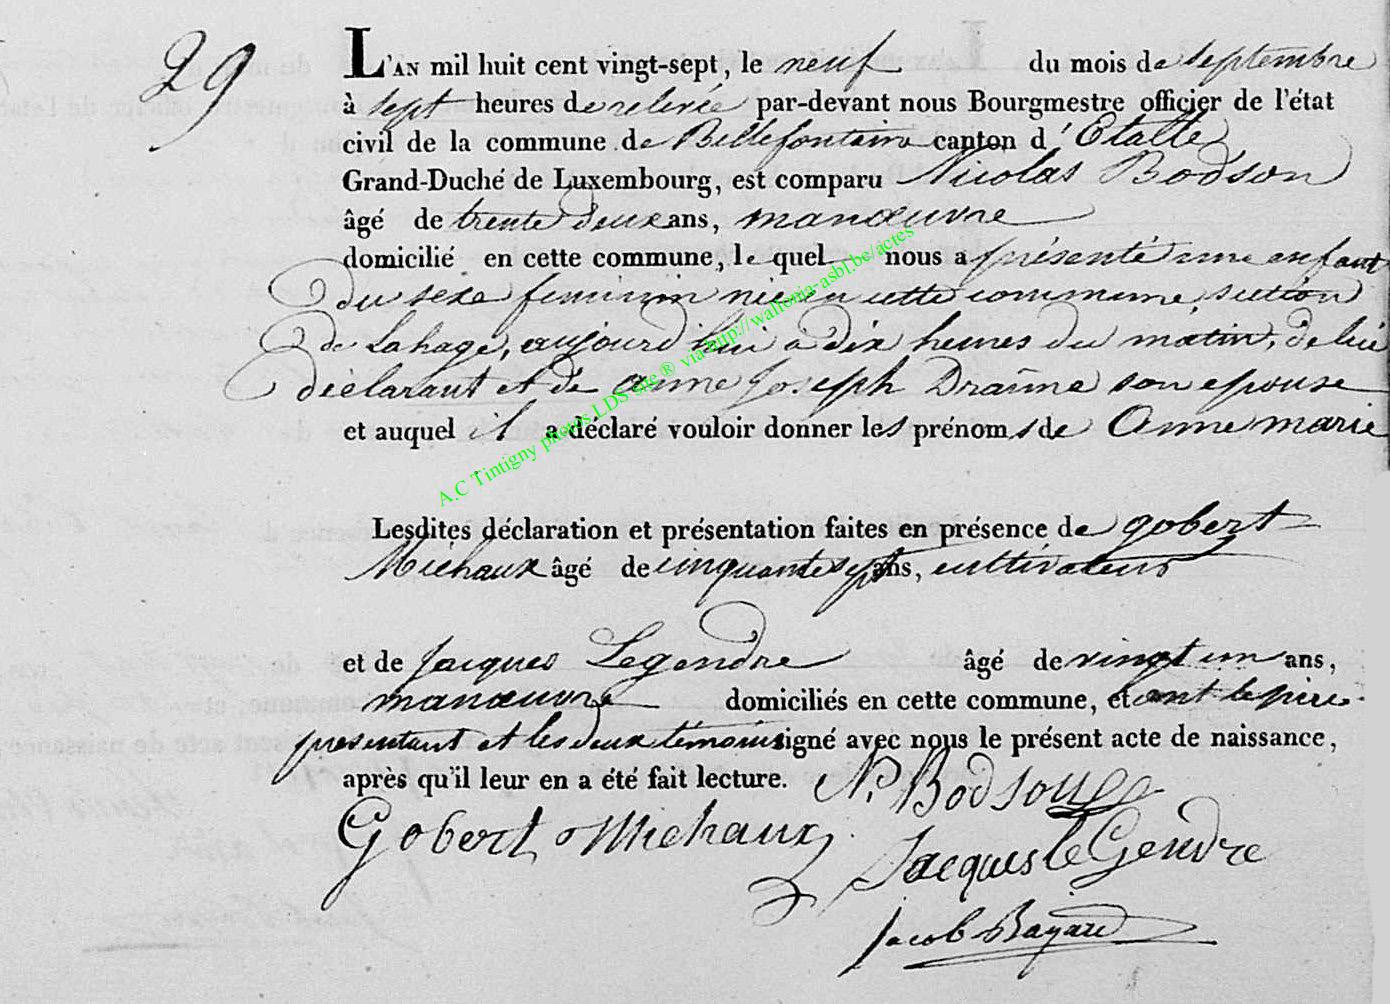 29
L'AN mil huit cent vingt-sept, le neuf du mois de septembre
à sept heures de relevée par-devant nous Bourgmestre officier de l'état
civil de la commune de Bellefontaine canton d'Etalle
Grand-Duché de Luxembourg, est comparu Nicolas Bodson
âgé de trente deux ans, manœuvre
domicilié en cette commune, le quel nous a présenté une enfant
du sexe feminin née en cette commune section
de Lahage, aujourd'hui à dix heures du matin, de lui
déclarant et de anne Joseph Draime son epouse
et auquel il a déclaré vouloir donner les prénoms de Anne marie
Lesdites déclaration et présentation faites en présence de gobert
Michaux âgé de cinquante sept ans, cultivateur
et de Jacques Legendre âgé de vingt un ans,
manœuvre domiciliés en cette commune, et ont le père
presentant et les deux témoins signé avec nous le présent acte de naissance,
après qu'il leur en a été fait lecture. N. Bodson
Gobert Michaux
Jacques le Gendre
Jacob Bayard
A.C Tintigny photos LDS site ® via http://wallonia-asbl.be/actes